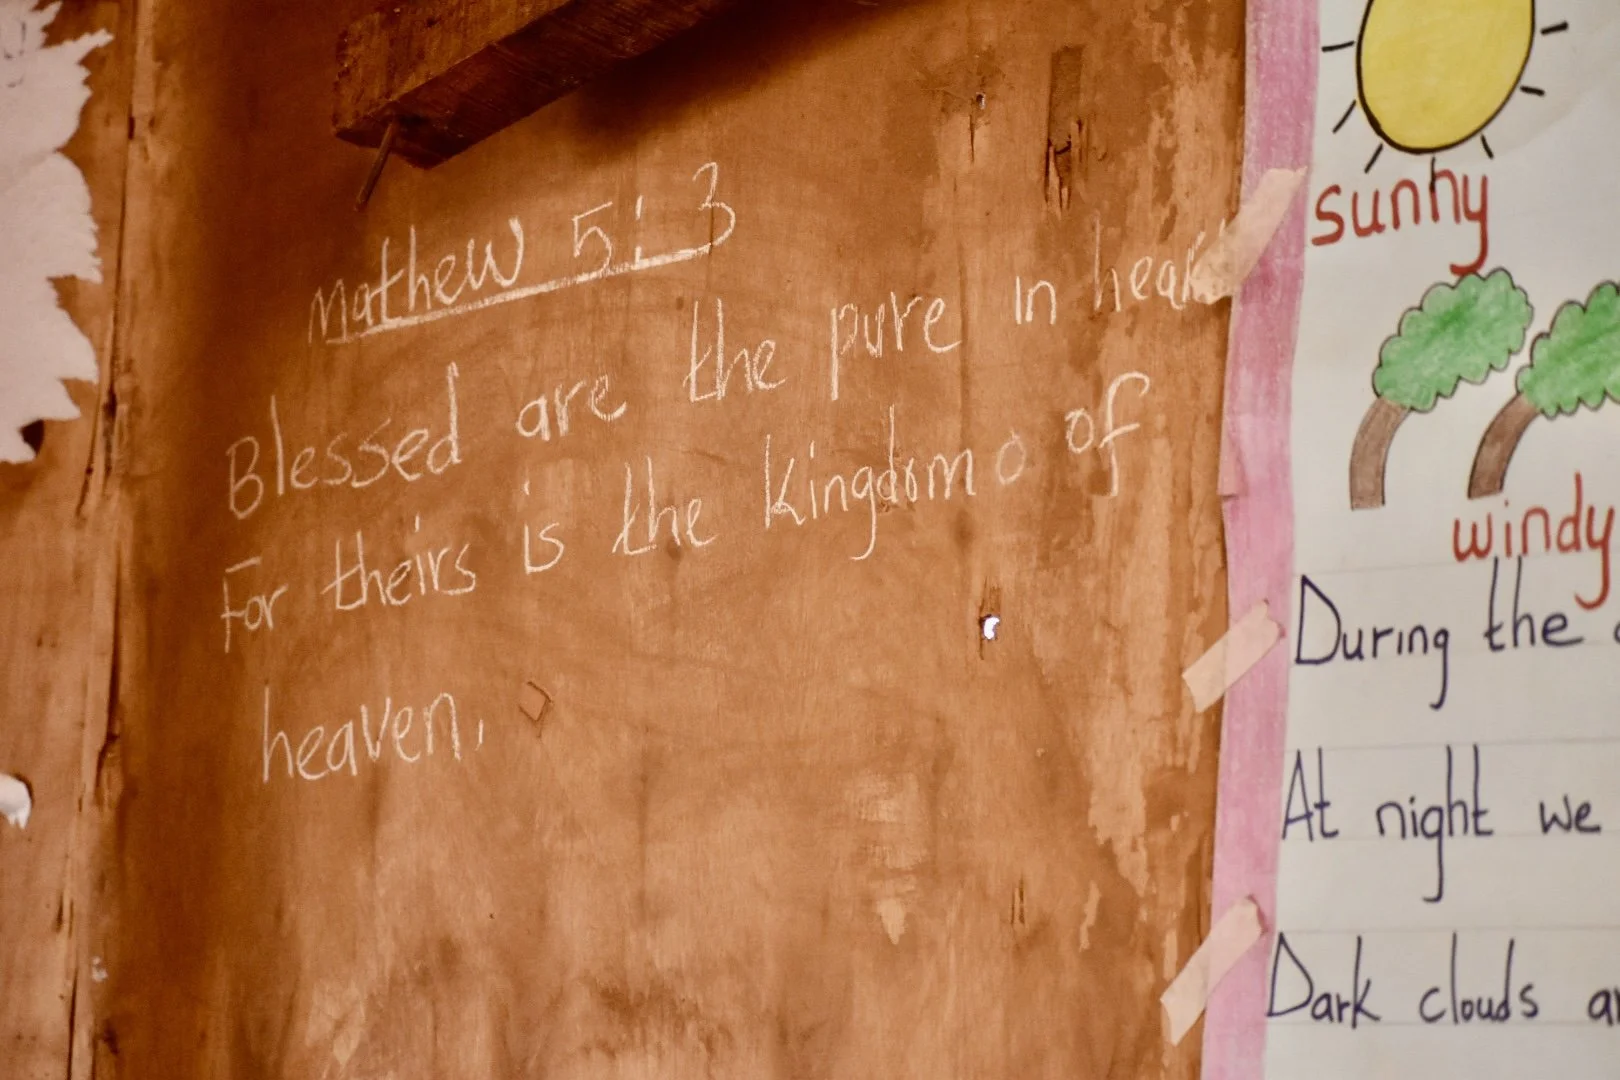 Mathew 5:3
Blessed are the pure in heart
For theirs is the kingdom o of
heaven.
sunny
windy
During the
At night we
Dark clouds